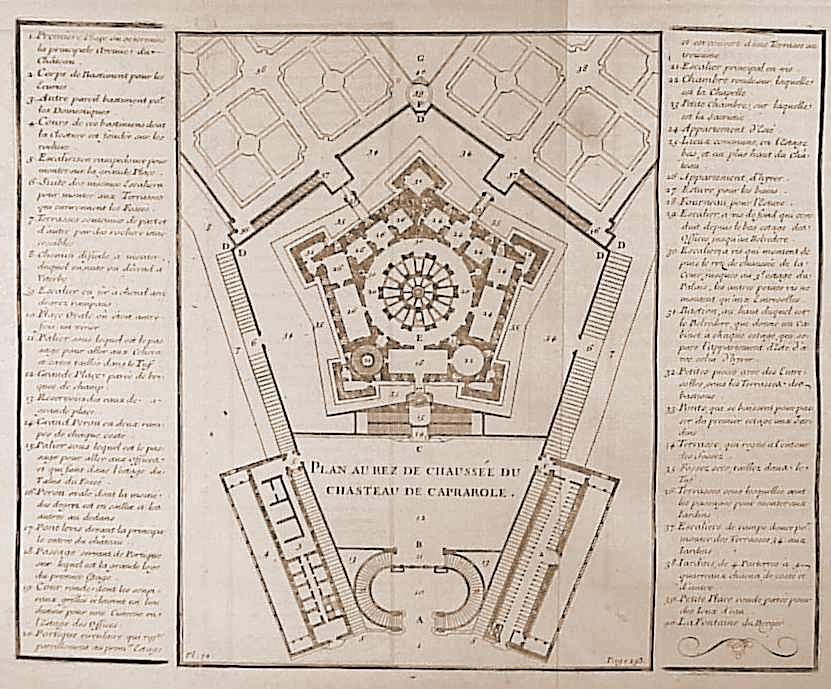 1. Premiere Place ou se termine
la principale Avenue du
Château.
2. Corps de Bastiment pour les
Ecuries
3. Autre pareil bastiment po.^r
les Domestiques
4. Cours de ces bastimens dont
la closture est fondée sur les
rochers
5. Escaliers en rampe douce pour
monter sur la grande Place.
6. Suite des mesmes Escaliers
pour monter aux Terrasses
qui environnent les Fossés.
7. Terrasses soutenues de part et
d'autre par des rochers inac
cessibles
8. Chemin
duquel ensuite on décend à
Viterbe
9. Escalier en fer à cheval avec
degrez rampans
10. Place Ovale
11. Palier sous lequel est le pas
sage pour aller aux Celiers
et caves taillés dans le Tuf
12. Grande Place pavée de bri
ques de champ.
13. Reservoirs des eaux de la
grande place.
14. Grand Peron en deux ram
pes de chaque costé.
15. Palier sous lequel est le pas
sage pour aller aux Offices
et qui sont dans l'étage du
Talus du Fossé.
16. Peron ovale dont la moitié
des degrez est en saillie et les
autres au dedans
17. Pont levis devant la principa
le entrée du château
18. Passage servant de Portique
sur lequel est la grande loge
du premier Etage.
19. Cour ronde dont les soupi
raux grillés éclairent un
pour une Citerne en
l'Etage des Offices.
20. Portique circulaire qui
pareillement au prem.^r Etage
G
F
D
D
D
D
D
E
C
PLAN AU REZ DE CHAUSSÉE DU
CHASTEAU DE CAPRAROLE.
B
A
Page 293.
et est couvert d'une Terrasse au
troisième
21. Escalier principal en vis.
22. Chambre ronde sur laquelle
est la Chapelle
23. Petite Chambre sur laquelle
est la Sacristie
24. Appartement d'Esté
25. Lieux communs, en l'étage
bas, et au plus haut du Châ
teau.
26. Appartement d'hyver.
27. Estuve pour les bains.
28. Fourneau pour l'Estuve.
29. Escalier à vis de fond qui con
duit depuis le bas estage des
Offices jusqu'au Belvedere.
30. Escaliers à vis qui montent de
puis le rez de chaussée de la
Cour jusques au 3.^e étage du
Palais, les autres petites vis ne
montent qu'aux Entresolles.
31. Bastion, au haut duquel est
le Belvedere, qui donne un Ca
binet à chaque estage, qui se
pare l'appartement d'Esté d'a
vec celui d'hyver.
32. Petites pieces avec des Entre
solles, sous les Terrasses des
bastions
33. Ponts qui se baissent pour pas
ser du premier estage aux Jar
dins
34. Terrasse qui regne à l'entour
des fossez.
35. Fossez secs, taillez dans le
Tuf
36. Terrasses sous lesquelles sont
les passages pour monter aux
Jardins
37. Escaliers de rampe douce po.^r
monter des Terrasses 34 aux
Jardins
38. Jardins de 4 Parterres à 4
quarreaux chacun de costé et
d'autre
39. Petite Place ronde percée pour
des Jeux d'eau.
40. La Fontaine du Berger